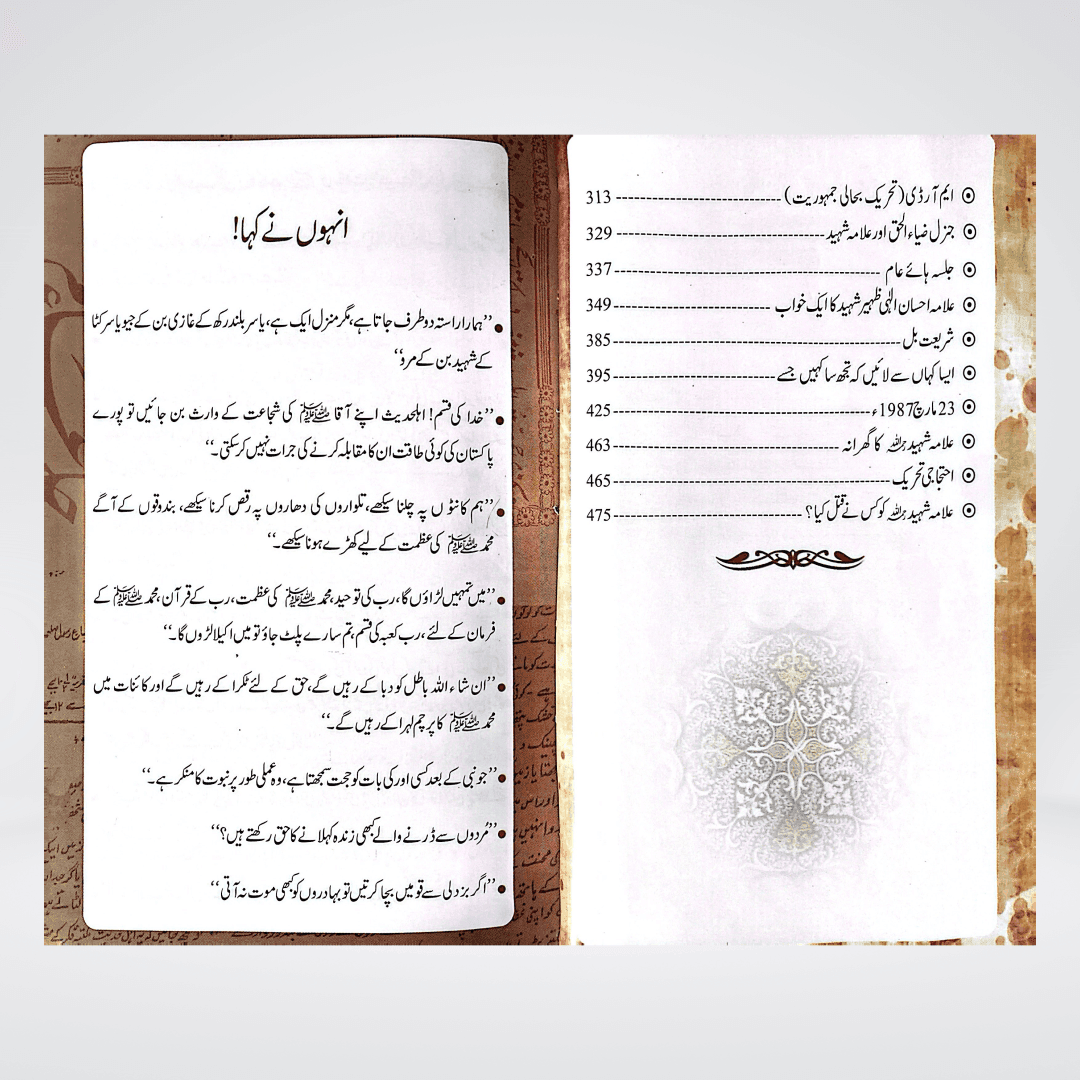 ایم آر ڈی (تحریک بحالی جمہوریت) 313
جنرل ضیاء الحق اور علامہ شہید 329
جلسہ ہائے عام 337
علامہ احسان الٰہی ظہیر شہید کا ایک خواب 349
شریعت بل 385
ایسا کہاں سے لائیں کہ تجھ سا کہیں جسے 395
23 مارچ 1987ء 425
علامہ شہید رحمہ اللہ کا گھرانہ 463
احتجاجی تحریک 465
علامہ شہید رحمہ اللہ کو کس نے قتل کیا؟ 475
انہوں نے کہا!
’’ہمارا راستہ دو طرف جاتا ہے، مگر منزل ایک ہے، یا سر بلند رکھ کے غازی بن کے جیو یا سر کٹا
کے شہید بن کے مرو‘‘
’’خدا کی قسم! اہلحدیث اپنے آقا ﷺ کی شجاعت کے وارث بن جائیں تو پورے
پاکستان کی کوئی طاقت ان کا مقابلہ کرنے کی جرات نہیں کر سکتی۔‘‘
’’ہم کانٹوں پہ چلنا سیکھے، تلواروں کی دھاروں پہ رقص کرنا سیکھے، بندوقوں کے آگے
محمد ﷺ کی عظمت کے لیے کھڑے ہونا سیکھے۔‘‘
’’میں تمہیں لڑاؤں گا، رب کی توحید، محمد ﷺ کی عظمت، رب کے قرآن، محمد ﷺ کے
فرمان کے لئے، رب کعبہ کی قسم، تم سارے پلٹ جاؤ تو میں اکیلا لڑوں گا۔‘‘
’’ان شاء اللہ باطل کو دبا کے رہیں گے، حق کے لئے ٹکرا کے رہیں گے اور کائنات میں
محمد ﷺ کا پرچم لہرا کے رہیں گے۔‘‘
’’جو نبی کے بعد کسی اور کی بات کو حجت سمجھتا ہے، وہ عملی طور پر نبوت کا منکر ہے۔‘‘
’’مُردوں سے ڈرنے والے کبھی زندہ کہلانے کا حق رکھتے ہیں؟‘‘
’’اگر بزدلی سے قومیں بچا کرتیں تو بہادروں کو کبھی موت نہ آتی‘‘